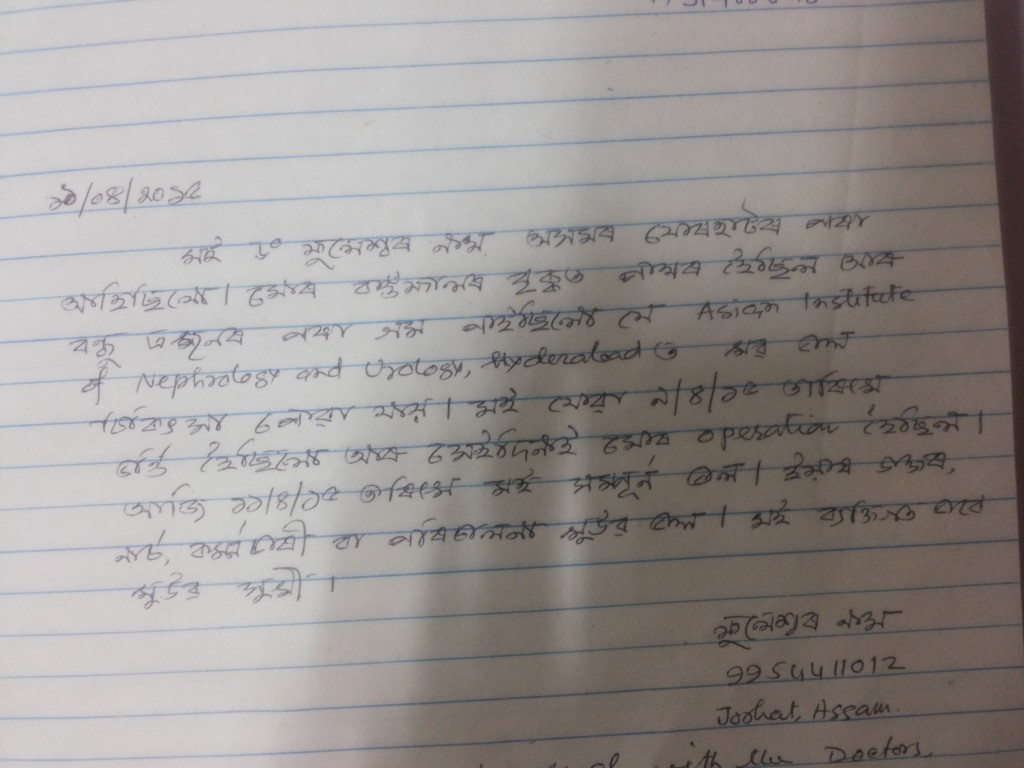 /০৪/২০১৫
মই ড° ফুলেশ্বৰ দাস অসমৰ যোৰহাটৰ পৰা
আহিছিলো। মোৰ বাওঁফালৰ বৃক্কত পাথৰ হৈছিল আৰু
বন্ধু এজনৰ পৰা গম পাইছিলো যে Asian Institute
of Nephrology and Urology, Hyderabad ত
চিকিৎসা যায়। মই যোৱা ৯/৪/১৫ তাৰিখে
ভৰ্তি হৈছিলো আৰু সেইদিনাই মোৰ operation হৈছিল।
আজি ১১/৪/১৫ তাৰিখে মই সম্পূৰ্ণ ভাল। ইয়াৰ ডাক্তৰ,
নাৰ্চ, কৰ্মচাৰী বা পৰিচালনা খুউব ভাল। মই ব্যক্তিগত ভাবে
খুউব সুখী।
ফুলেশ্বৰ দাস
9954411012
Jorhat, Assam.
with the Doctors